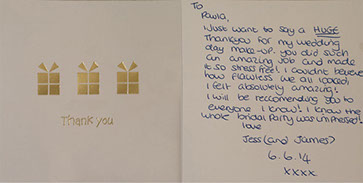 Thank you
To
Paula,
I Just want to say a HUGE
Thankyou for my wedding
day make-up. you did such
an amazing job and made
it so stress free! I couldnt believe
how flawless we all looked.
I felt absolutely amazing!
I will be reccomending you to
everyone I know! I know the
whole bridal Party was impressed!
love
Jess (and James)
6.6.14
xxxx